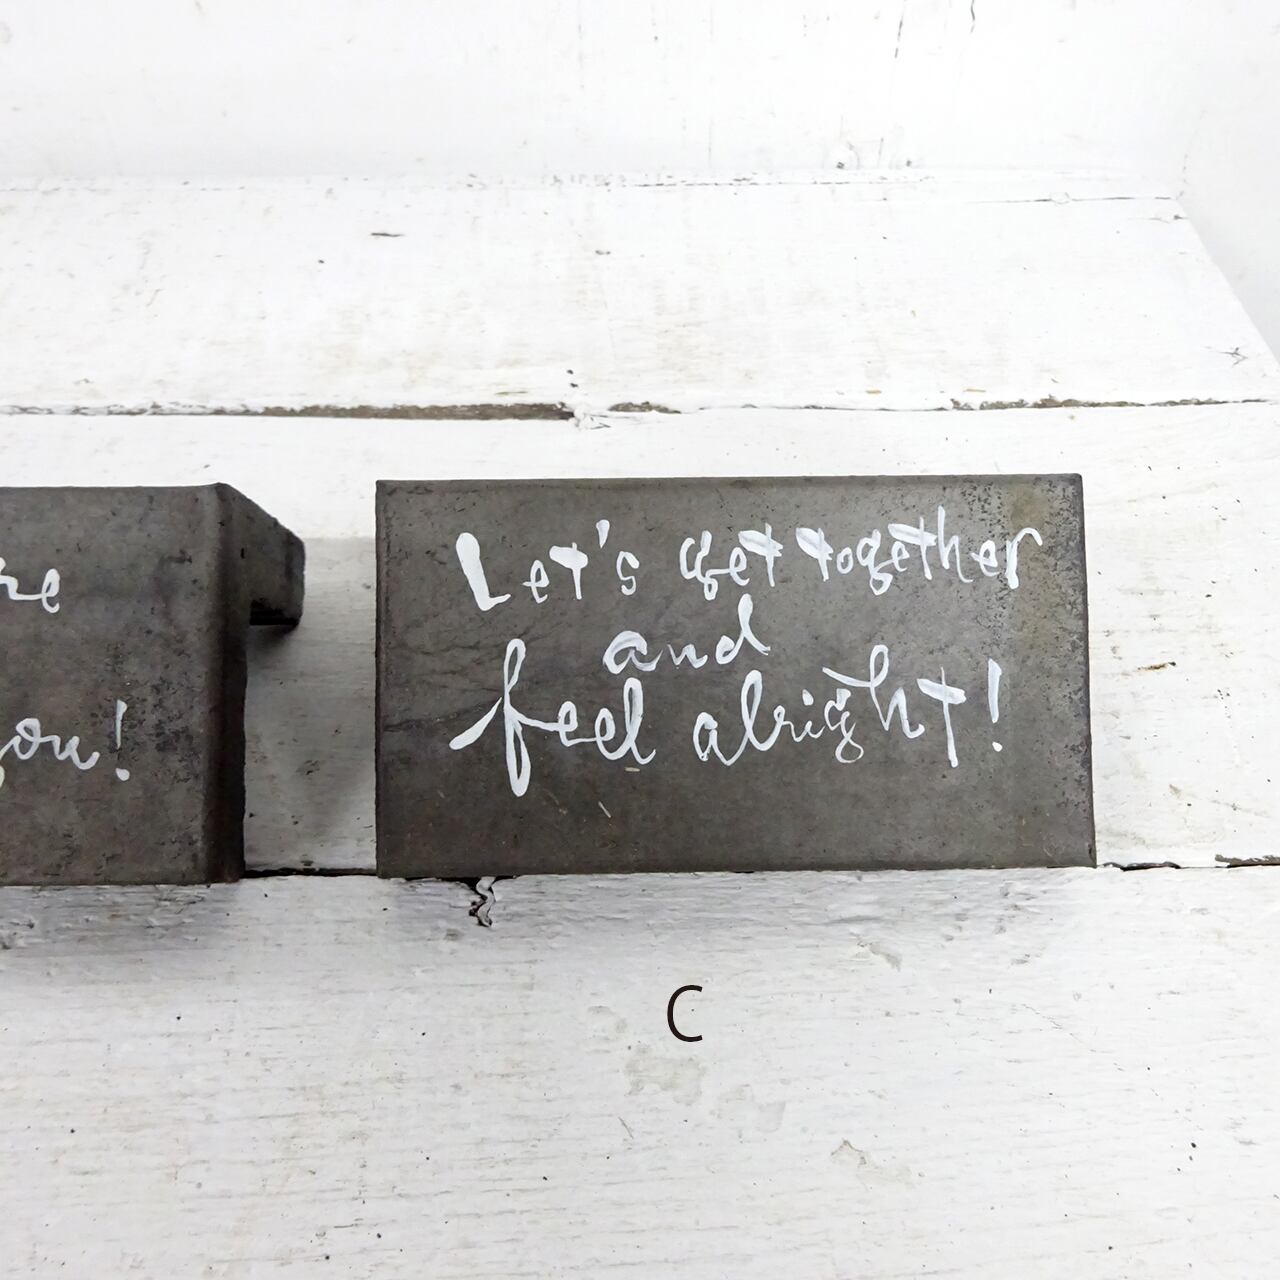 re
ou!
Let's get together
and
feel alright!
C